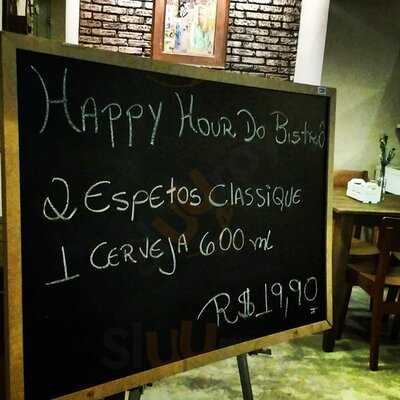 Happy Hour Do Bistrô
2 Espetos Classique
1 Cerveja 600 ml
R$19,90
sluurpy